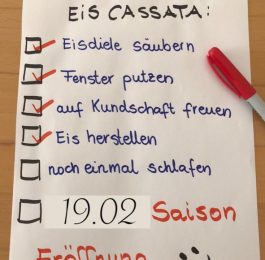 EiS CASSATA:
Eisdiele säubern
Fenster putzen
auf Kundschaft freuen
Eis herstellen
noch einmal schlafen
19.02 Saison
Eröffnung